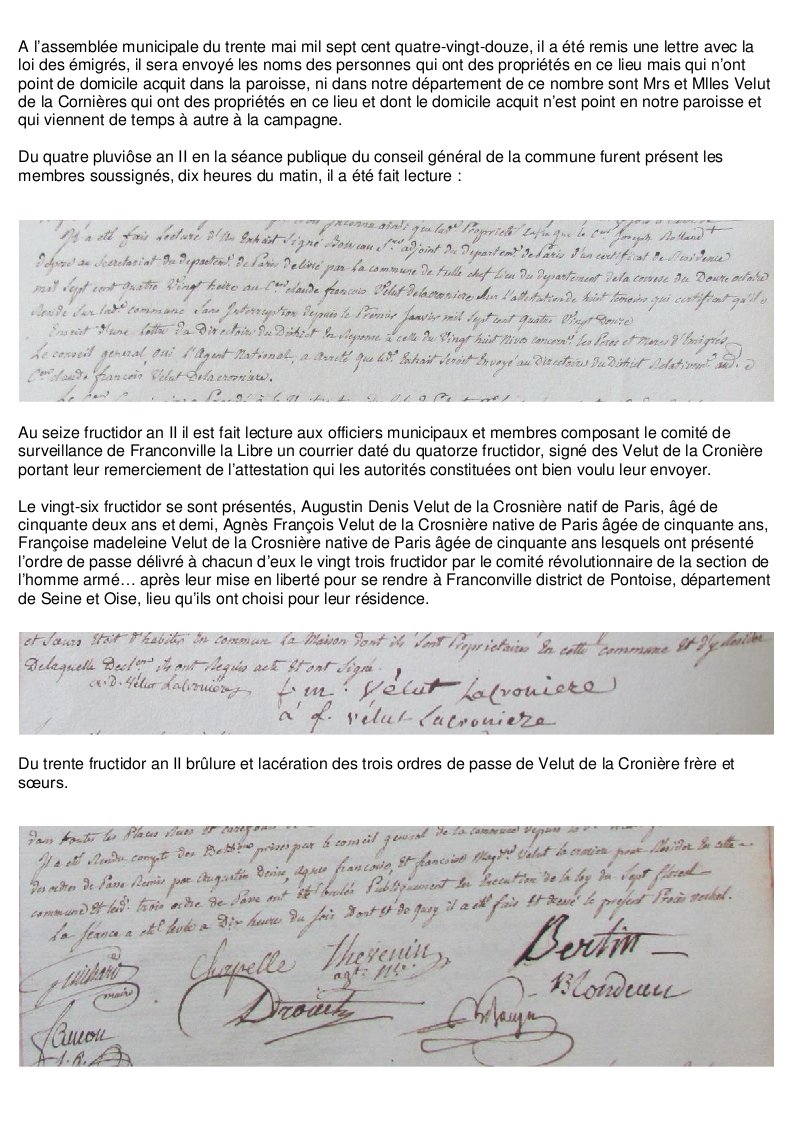 A l’assemblée municipale du trente mai mil sept cent quatre-vingt-douze, il a été remis une lettre avec la
loi des émigrés, il sera envoyé les noms des personnes qui ont des propriétés en ce lieu mais qui n’ont
point de domicile acquit dans la paroisse, ni dans notre département de ce nombre sont Mrs et Mlles Velut
de la Cornières qui ont des propriétés en ce lieu et dont le domicile acquit n’est point en notre paroisse et
qui viennent de temps à autre à la campagne.
Du quatre pluviôse an II en la séance publique du conseil général de la commune furent présent les
membres soussignés, dix heures du matin, il a été fait lecture :
Il a eté fais Lecture d'Un Extrait Signé adjoint du departemt. de Paris d'un certificat de Residence
deposé au Secretariat du departemt. de Paris delivré par la commune de tulle chef Lieu du departement de la correse du Douze octobre
mil Sept cent quatre Vingt treize au Cen. claude francois Velut delacroniere Sur l'attestation de huit temoins qui certifient qu'il
Reside Sur lade. commune Sans Interruption depuis le Premier Janvier mil Sept cent quatre Vingt Douze
Ensuit d'une Lettre du Directoire du District En Reponse à celle du Vingt huit Nivos concernt. les Peres et Meres d'Emigrés
Le conseil general oui l'Agent National, a arreté que led. Extrait Seroit Envoyé au Directoire du District Relativemt. aud.
Cen. claude françois Velut Delacroniere.
Au seize fructidor an II il est fait lecture aux officiers municipaux et membres composant le comité de
surveillance de Franconville la Libre un courrier daté du quatorze fructidor, signé des Velut de la Cronière
portant leur remerciement de l’attestation qui les autorités constituées ont bien voulu leur envoyer.
Le vingt-six fructidor se sont présentés, Augustin Denis Velut de la Crosnière natif de Paris, âgé de
cinquante deux ans et demi, Agnès François Velut de la Crosnière native de Paris âgée de cinquante ans,
Françoise madeleine Velut de la Crosnière native de Paris âgée de cinquante ans lesquels ont présenté
l’ordre de passe délivré à chacun d’eux le vingt trois fructidor par le comité révolutionnaire de la section de
l’homme armé… après leur mise en liberté pour se rendre à Franconville district de Pontoise, département
de Seine et Oise, lieu qu’ils ont choisi pour leur résidence.
et Sœurs étoit d'habiter En commun La Maison dont ils Sont Proprietaires En cette commune Et d'y Resider
Delaquelle Declon. ils ont Requis acte Et ont Signé.
a. D. Velut Lacroniere
f. m. Vélut Lacroniere
a f. vélut Lacroniere
Du trente fructidor an II brûlure et lacération des trois ordres de passe de Velut de la Cronière frère et
sœurs.
dans toutes les Places Rues et
Il a eté Rendu compte des prises par le conseil general de la commune depuis
des ordres de Passe Remis par augustin denis, agnes francoise, et francoise Velut la croniere pour Resider En cette
commune Et trois ordre de Passe ont eté brulés Publiquement En Execution de la loy du Sept floreal
La Séance a eté levée a Dix heures du Soir Dont Et de quoy il a eté fait et dressé le present Procès verbal.
maire
Chapelle
Thevenin
agt. Nal.
Bertin
Blondeau
Drouet